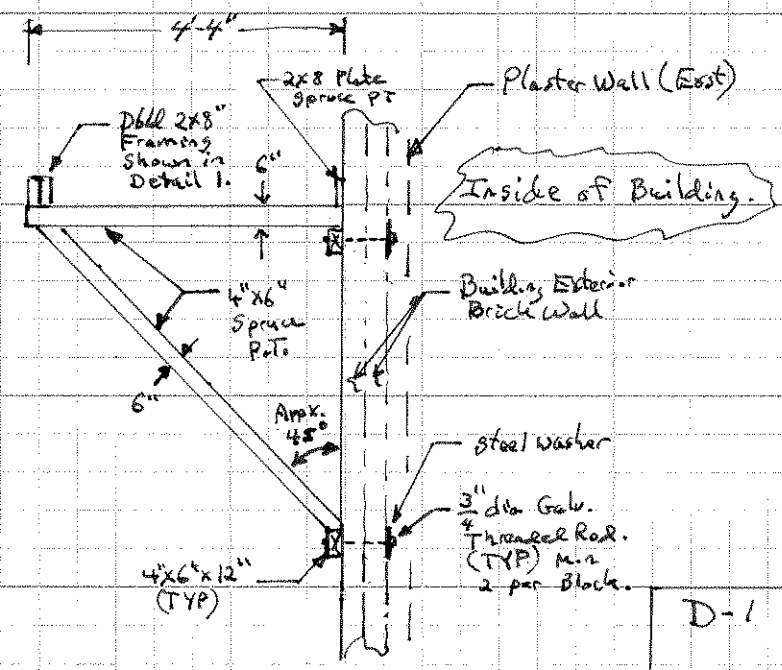 4'-4"
2x8 Plate
Spruce PT
Plaster Wall (East)
Dbld 2x8"
Framing
Shown in
Detail 1.
6"
Inside of Building.
4"x6"
Spruce
P.T.
Building Exterior
Brick Wall
6"
Appx.
45°
steel washer
3/4" dia Galv.
Threaded Rod.
(TYP) Min
2 per Block.
4"x6"x12"
(TYP)
D-1